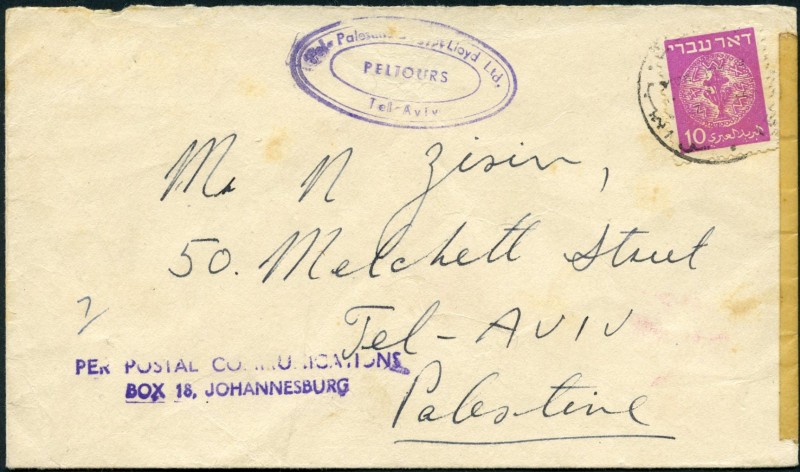 Palestine Lloyd Ltd.
PELTOURS
Tel-Aviv
דאר עברי
10 البريد العبري
Mr N Zisin,
50. Melchett Street
Tel-AVIV
Palestine
PER POSTAL COMMUNICATIONS
BOX 18, JOHANNESBURG